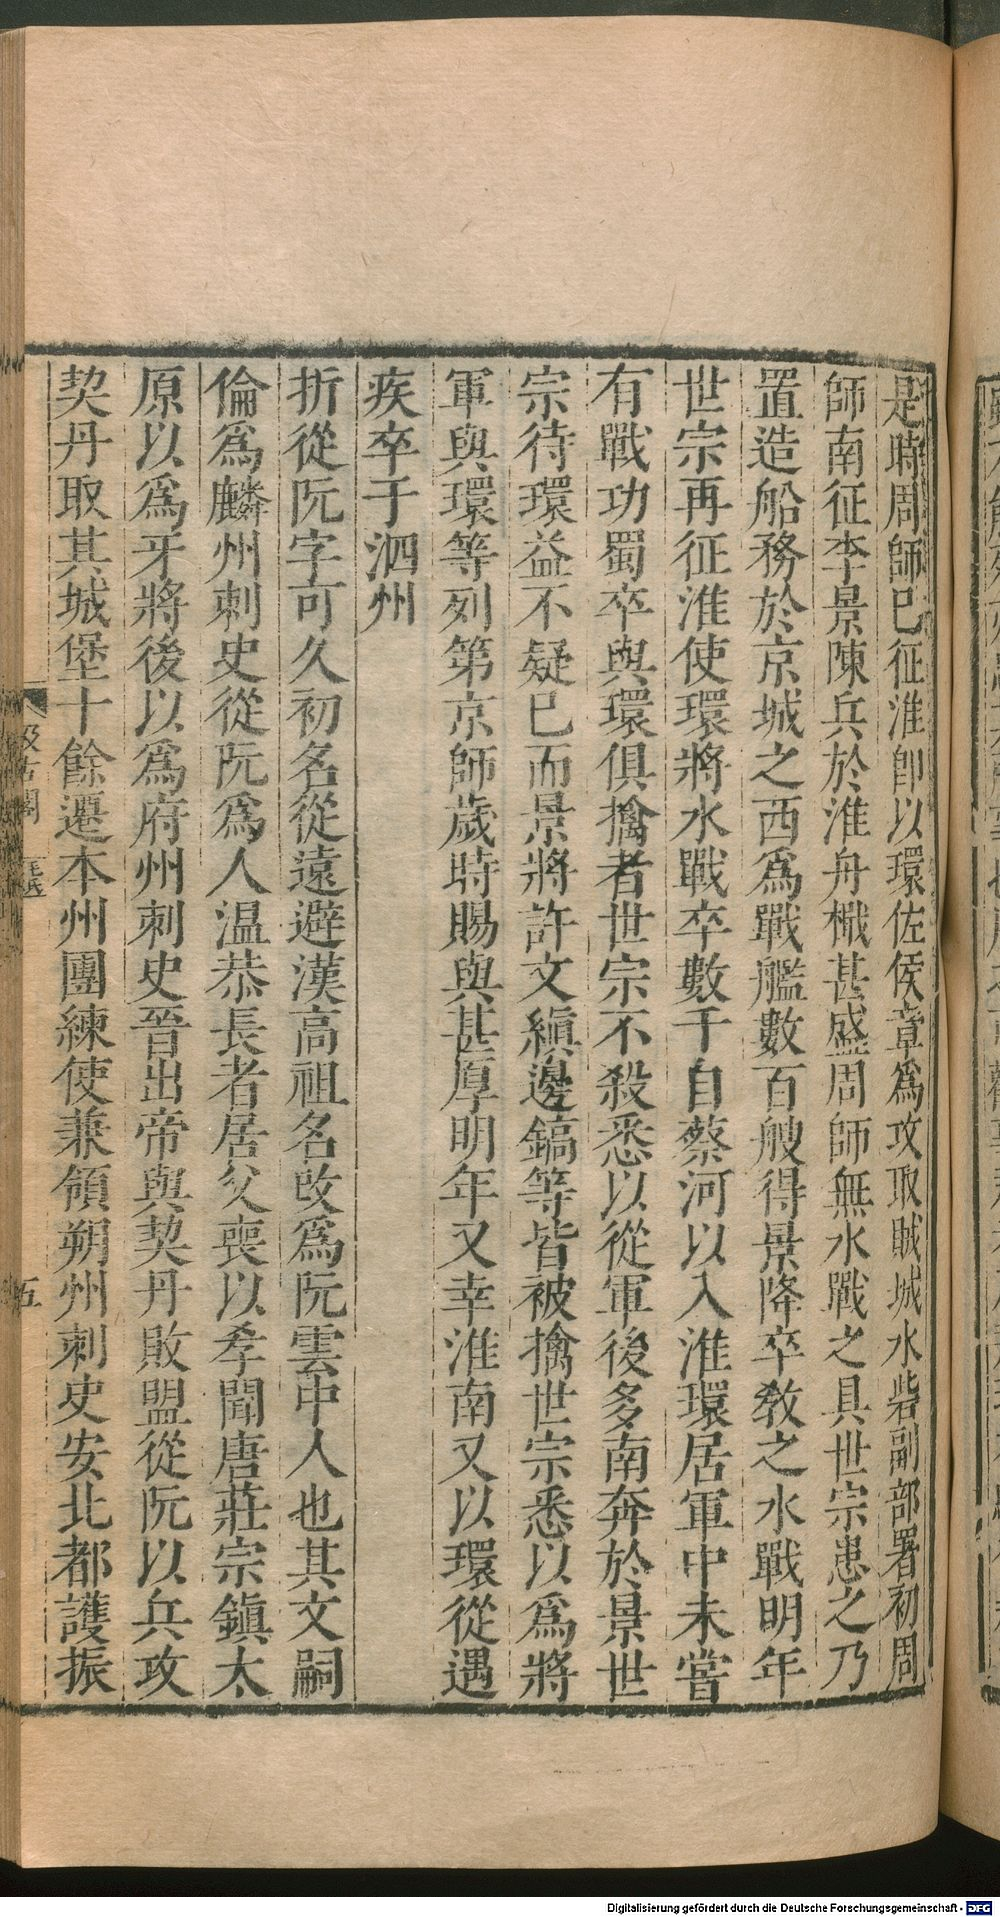 是時周師已征淮卽以環佐侯章爲攻取賊城水砦副部署初周
師南征李景陳兵於淮舟檝甚盛周師無水戰之具世宗患之乃
置造船務於京城之西爲戰艦數百艘得景降卒敎之水戰明年
世宗再征淮使環將水戰卒數千自蔡河以入淮環居軍中未嘗
有戰功蜀卒與環俱擒者世宗不殺悉以從軍後多南奔於景世
宗待環益不疑已而景將許文縝邊鎬等皆被擒世宗悉以爲將
軍與環等列第京師歲時賜與甚厚明年又幸淮南又以環從遇
疾卒于泗州
折從阮字可久初名從遠避漢高祖名改爲阮雲中人也其父嗣
倫爲麟州刺史從阮爲人温恭長者居父喪以孝聞唐莊宗鎭太
原以爲牙將後以爲府州刺史晉出帝與契丹敗盟從阮以兵攻
契丹取其城堡十餘遷本州團練使兼領朔州刺史安北都護振
汲古閣
五
Digitalisierung gefördert durch die Deutsche Forschungsgemeinschaft - DFG